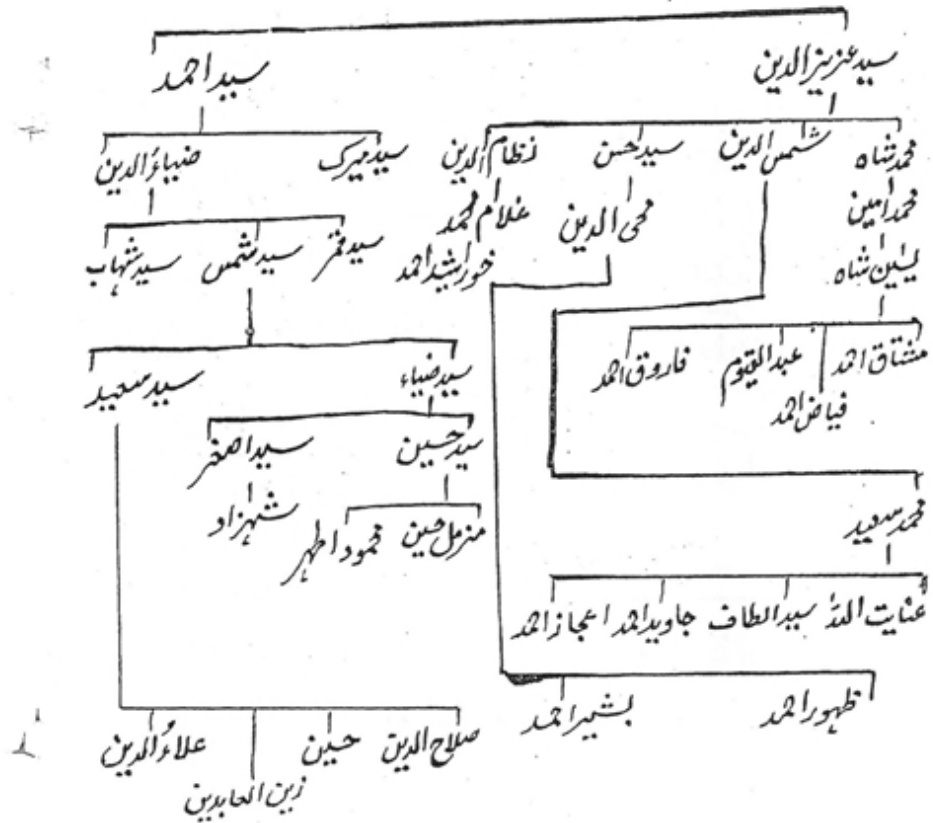 سید عزیز الدین سید احمد
محمد شاہ شمس الدین سید حسن نظام الدین سید میرک ضیاء الدین
محمد امین محی الدین غلام محمد
یٰسین شاہ خورشید احمد سید قمر سید شمس سید شہاب
مشتاق احمد فیاض احمد عبد القیوم فاروق احمد سید ضیاء سید سعید
سید حسین سید اصغر
محمد سعید مزمل حسین محمود اطہر شہزاد
عنایت اللہ سید الطاف جاوید احمد اعجاز احمد
ظہور احمد بشیر احمد
صلاح الدین حسین زین العابدین علاؤ الدین